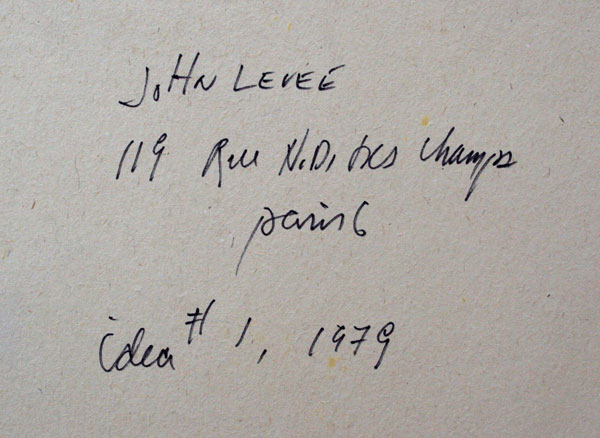 JOHN LEVEÉ
119 Rue N.D. des champs
paris 6
idea # 1, 1979